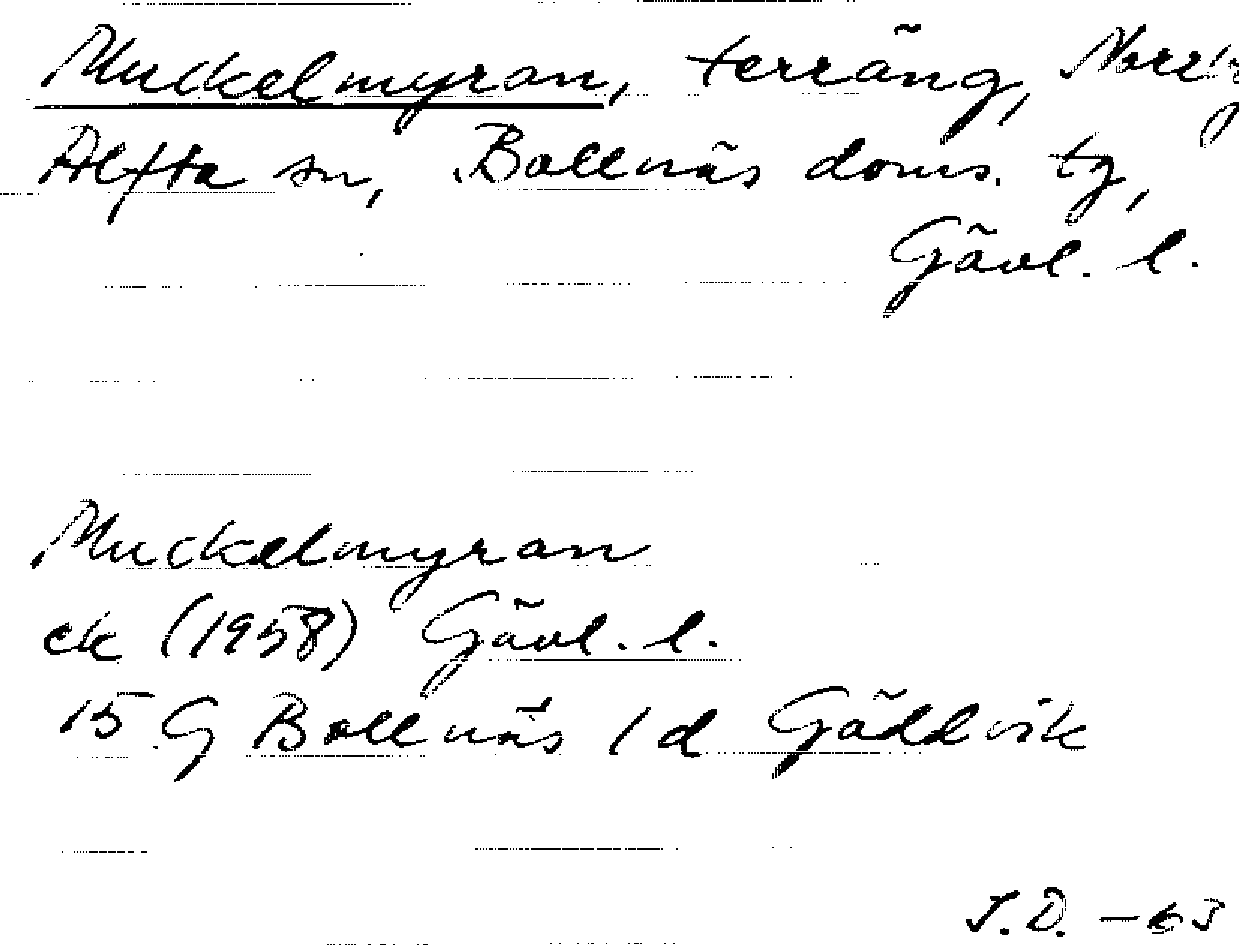 Muckelmyran, terräng,
Alfta sn, Bollnäs doms. tg,
Gävl. l.
Muckelmyran
ek (1958) Gävl. l.
15 G Bollnäs 1 d Gäddvik
J.D. -63